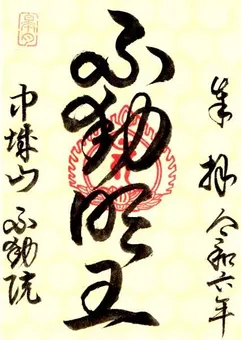 奉拝 令和六年
不動明王
中城山 不動院